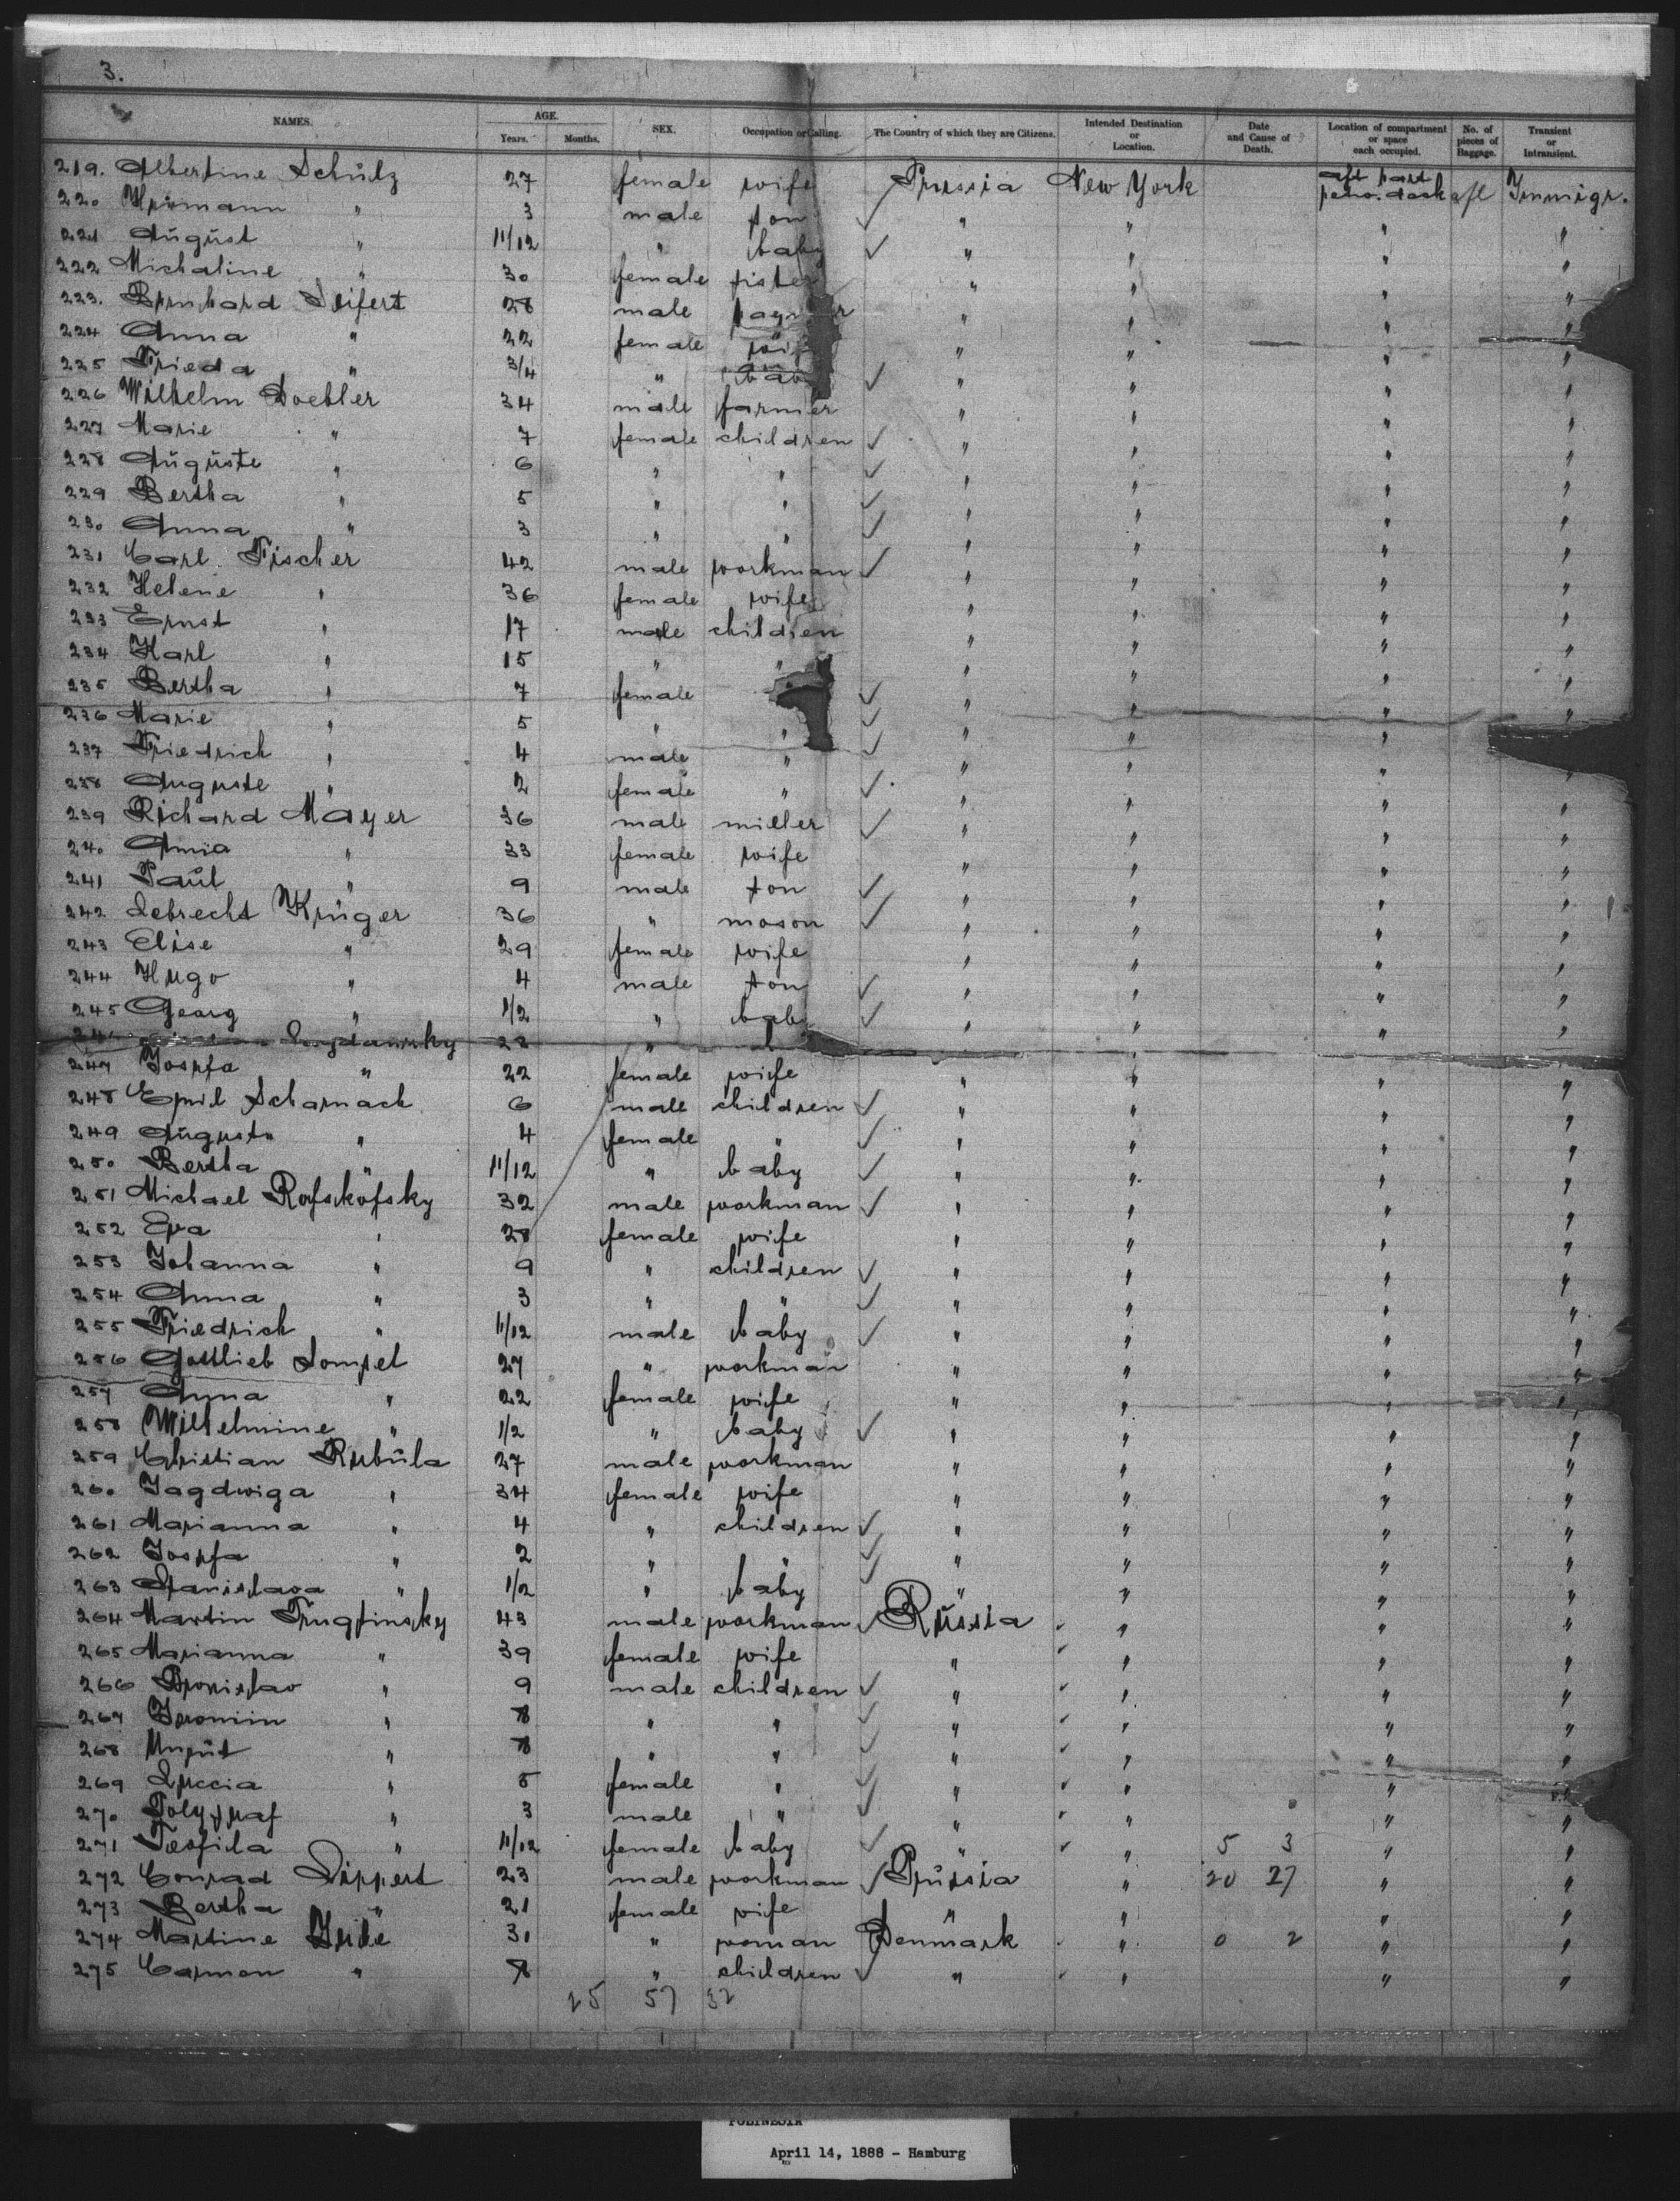 3.
NAMES. AGE. SEX. Occupation or Calling. The Country of which they are Citizens. Intended Destination or Location. Date and Cause of Death. Location of compartment or space each occupied. No. of pieces of Baggage. Transient or Intransient.
Years. Months.
219. Albertine Schülz 27 female wife Prussia New York aft part aft Immigr.
220 Hermann " 3 male son ✓ " " " "
221 August " 11/12 " baby ✓ " " " "
222 Michaline " 30 female sister " " " "
223. Bernhard Seifert 28 male " " " "
224 Anna " 22 female wife " " " "
225 Frieda " 3/4 " baby ✓ " " " "
226 Wilhelm Doehler 34 male farmer " " " "
227 Marie " 7 female children ✓ " " " "
228 Auguste " 6 " " ✓ " " " "
229 Bertha " 5 " " ✓ " " " "
230 Anna " 3 " " ✓ " " " "
231 Carl Fischer 42 male workman ✓ " " " "
232 Helene " 36 female wife " " " "
233 Ernst " 17 male children " " " "
234 Karl " 15 " " " " " "
235 Bertha " 7 female ✓ " " " "
236 Marie " 5 " " ✓ " " " "
237 Friedrich " 4 male " ✓ " " " "
238 Auguste " 2 female " ✓ " " " "
239 Richard Mayer 36 male miller ✓ " " " "
240 " 33 female wife " " " "
241 Paul " 9 male son ✓ " " " "
242 Lebrecht Krüger 36 " mason ✓ " " " "
243 Elise " 29 female wife " " " "
244 Hugo " 4 male son ✓ " " " "
245 Georg " 1/2 " baby ✓ " " " "
246 28 "
247 Josefa " 22 female wife " " " "
248 Emil Scharnack 6 male children ✓ " " " "
249 Auguste " 4 female " ✓ " " " "
250 Bertha " 11/12 " baby ✓ " " " "
251 Michael Rafskofsky 32 male workman ✓ " " " "
252 Eva " 28 female wife " " " "
253 Johanna " 9 " children ✓ " " " "
254 Anna " 3 " " ✓ " " " "
255 Friedrich " 11/12 male baby ✓ " " " "
256 Gottlieb Sompel 27 " workman " " " "
257 Anna " 22 female wife " " " "
258 Wilhelmine " 1/2 " baby ✓ " " " "
259 Christian Rubüla 27 male workman " " " "
260 Jagdwiga " 34 female wife " " " "
261 Marianna " 4 " children ✓ " " " "
262 Josefa " 2 " " ✓ " " " "
263 Stanislava " 1/2 " baby ✓ " " " "
264 Martin 43 male workman ✓ Russia " " "
265 Marianna " 39 female wife " " " "
266 Bronislav " 9 male children ✓ " " " "
267 " 8 " " ✓ " " " "
268 " 8 " " ✓ " " " "
269 Luccia " 5 female " ✓ " " " "
270 " 3 male " ✓ " " " "
271 Teofila " 11/12 female baby ✓ " " 5 3 " "
272 Conrad Lippert 23 male workman ✓ Prussia " 20 27 " "
273 Bertha " 21 female wife " " " "
274 Martine 31 " woman Denmark " 0 2 " "
275 Carmen " 8 " children ✓ " " " "
25 57 32
POLYNESIA
April 14, 1888 - Hamburg